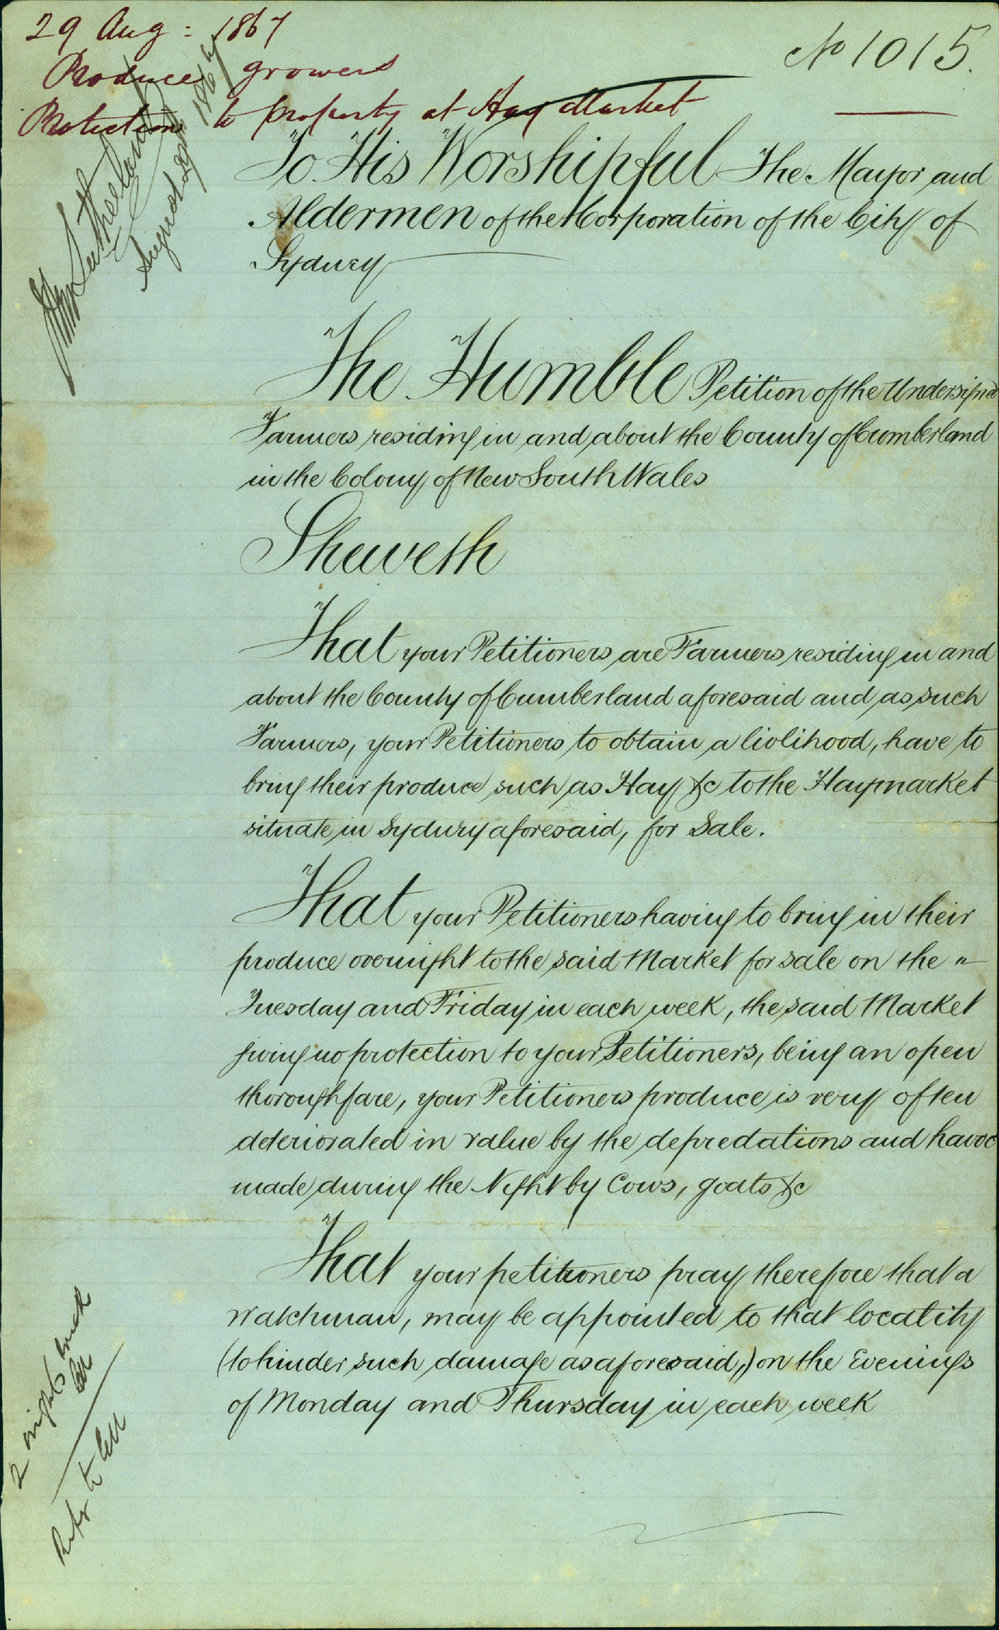 29 Aug: 1867
No 1015.
Produce growers
Protection to property at Hay Market
To His Worshipful The Mayor and
Aldermen of the Corporation of the City of
Sydney
The Humble Petition of the Undersigned
Farmers residing in and about the County of Cumberland
in the Colony of New South Wales
Sheweth
That your Petitioners are Farmers residing in and
about the County of Cumberland aforesaid and as such
Farmers, your Petitioners to obtain a livlihood, have to
bring their produce such as Hay &c to the Haymarket
situate in Sydney aforesaid, for Sale.
That your Petitioners having to bring in their
produce overnight to the said Market for sale on the "
Tuesday and Friday in each week, the said Market
giving no protection to your Petitioners, being an open
thoroughfare, your Petitioners produce is very often
deteriorated in value by the depredations and havoc
made during the Night by Cows, goats &c
That your petitioners pray therefore that a
Watchman, may be appointed to that locality
(to hinder such damage as aforesaid,) on the Evenings
of Monday and Thursday in each week
John Sutherland
August 29th 1867
2 nights
Refer to